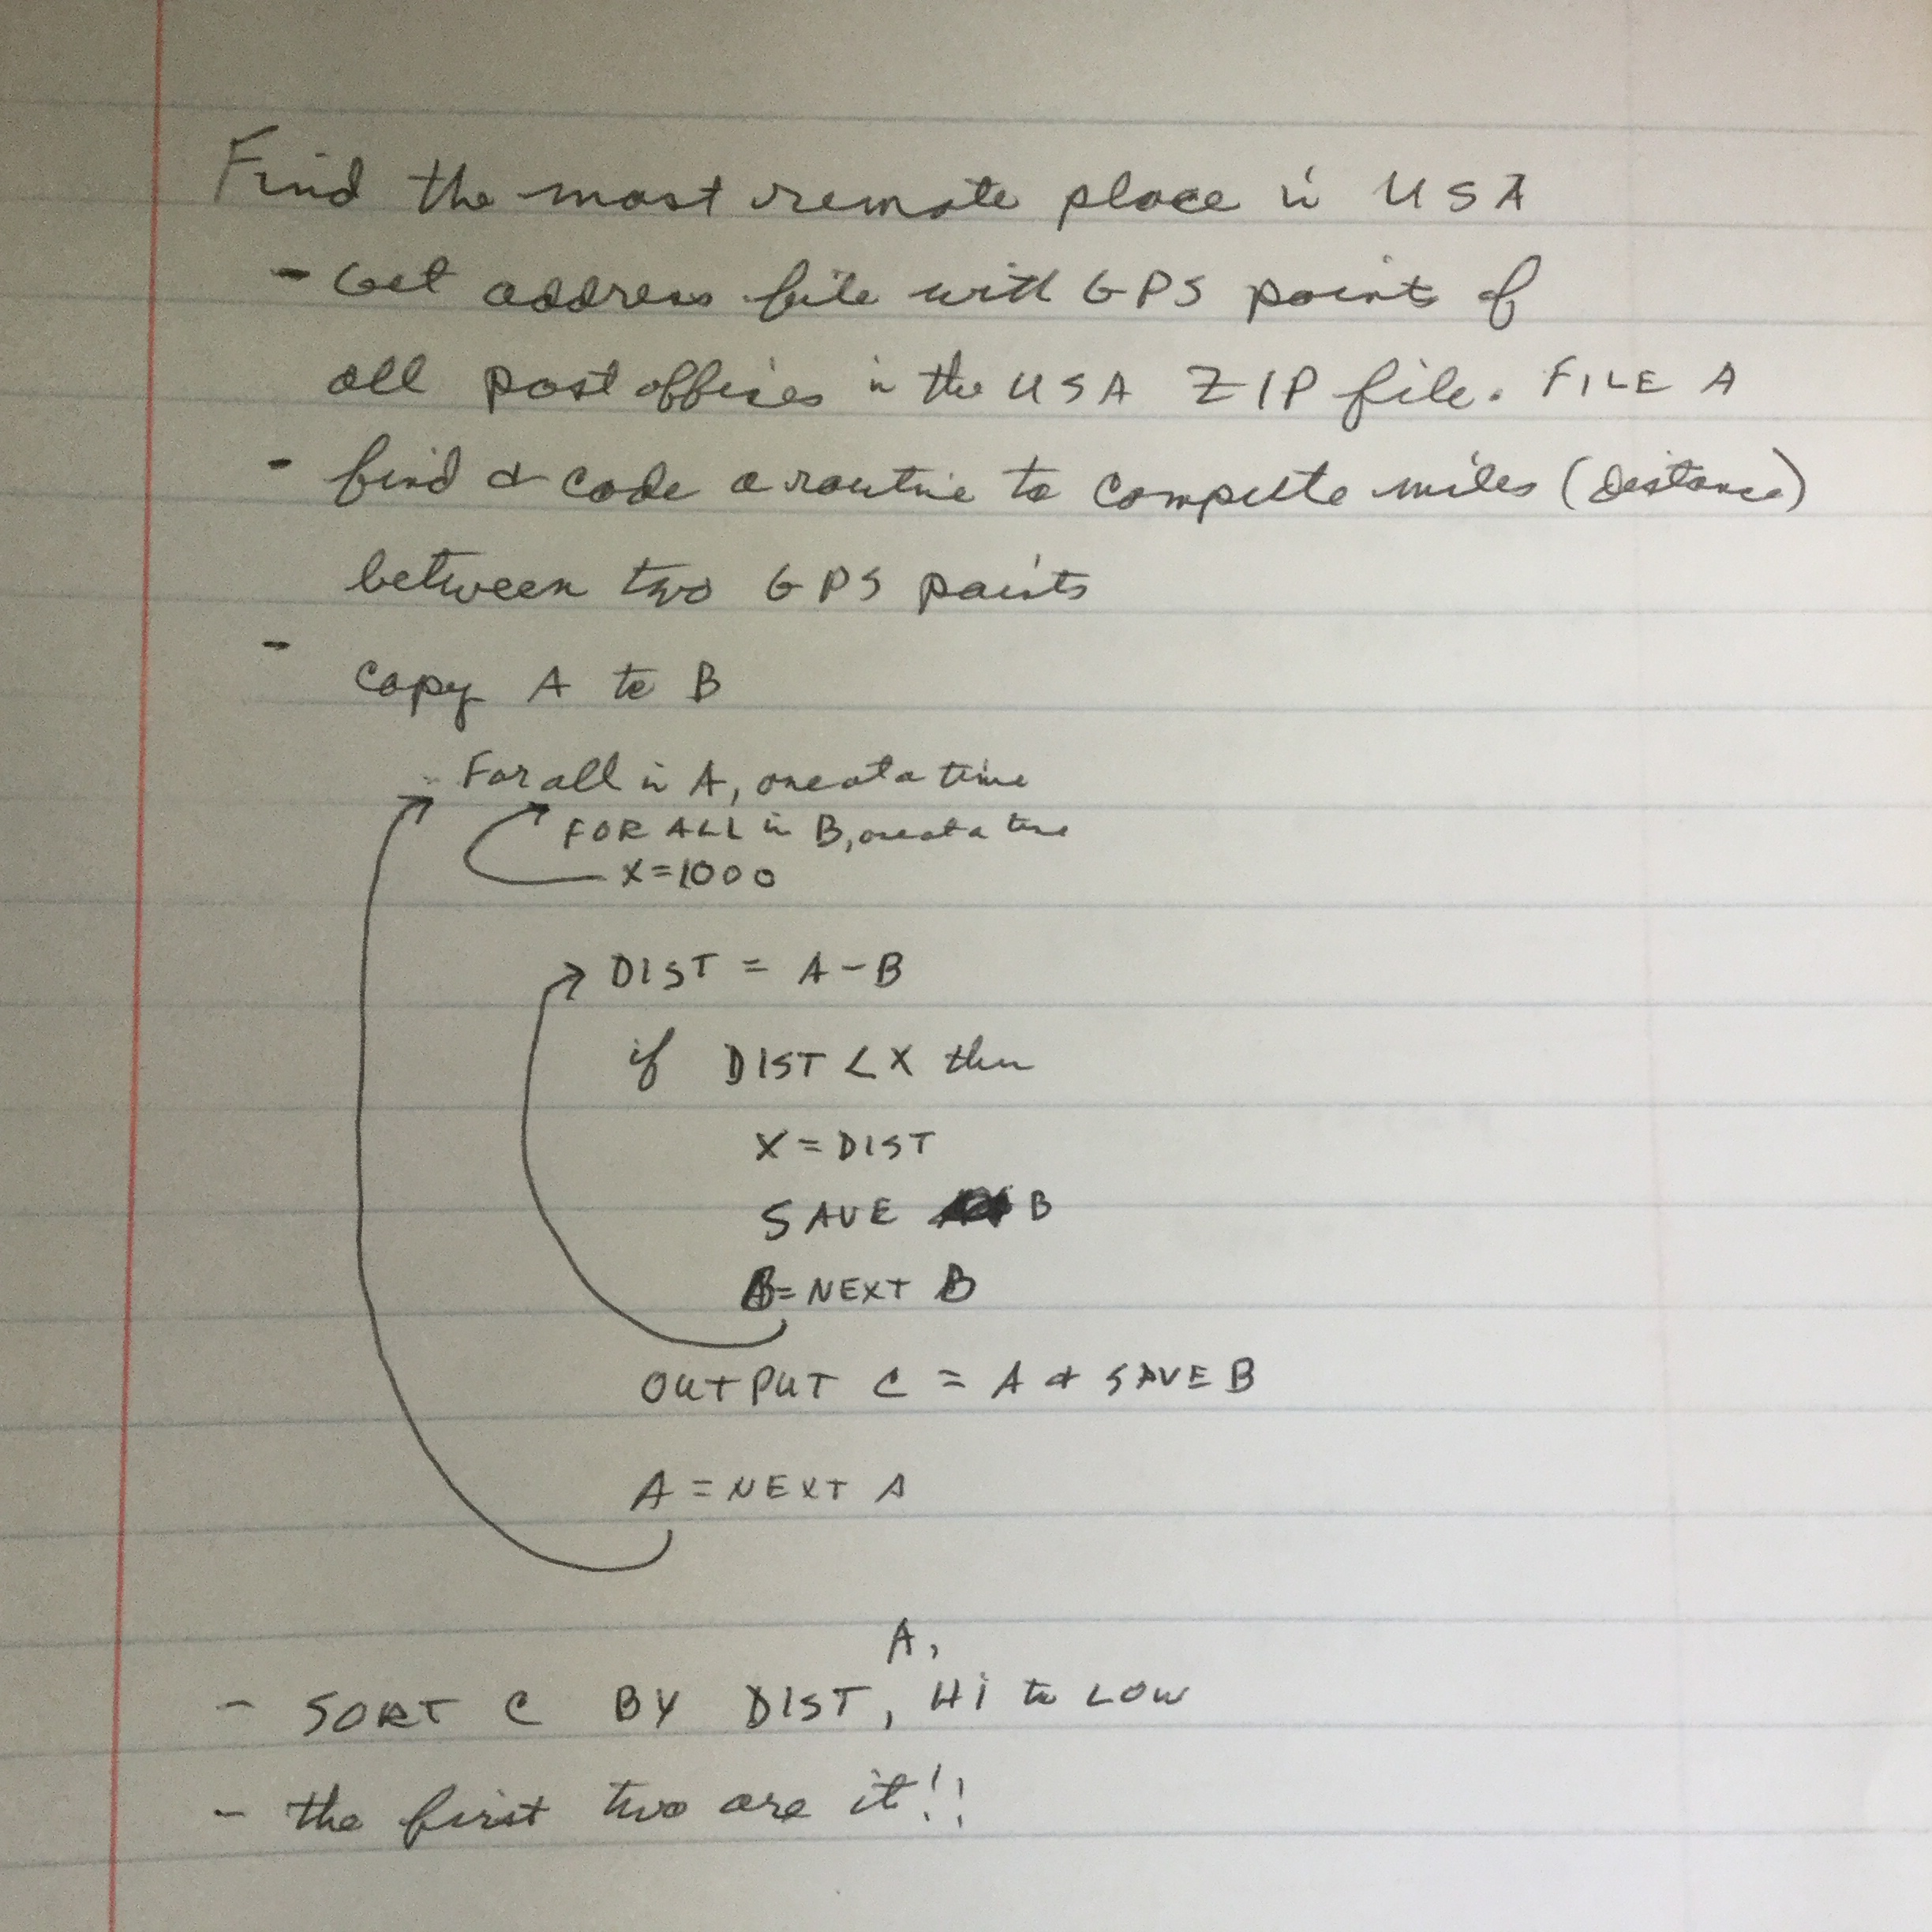 Find the most remote place in USA
- Get address file with GPS points of
all post offices in the USA ZIP file. FILE A
- find & code a routine to compute miles (distance)
between two GPS points
-
copy A to B
- For all in A, one at a time
FOR ALL in B, one at a time
X=1000
DIST = A-B
if DIST < X then
X = DIST
SAVE B
B = NEXT B
OUTPUT C = A & SAVE B
A = NEXT A
A,
- SORT C BY DIST, Hi to LOW
- the first two are it!!